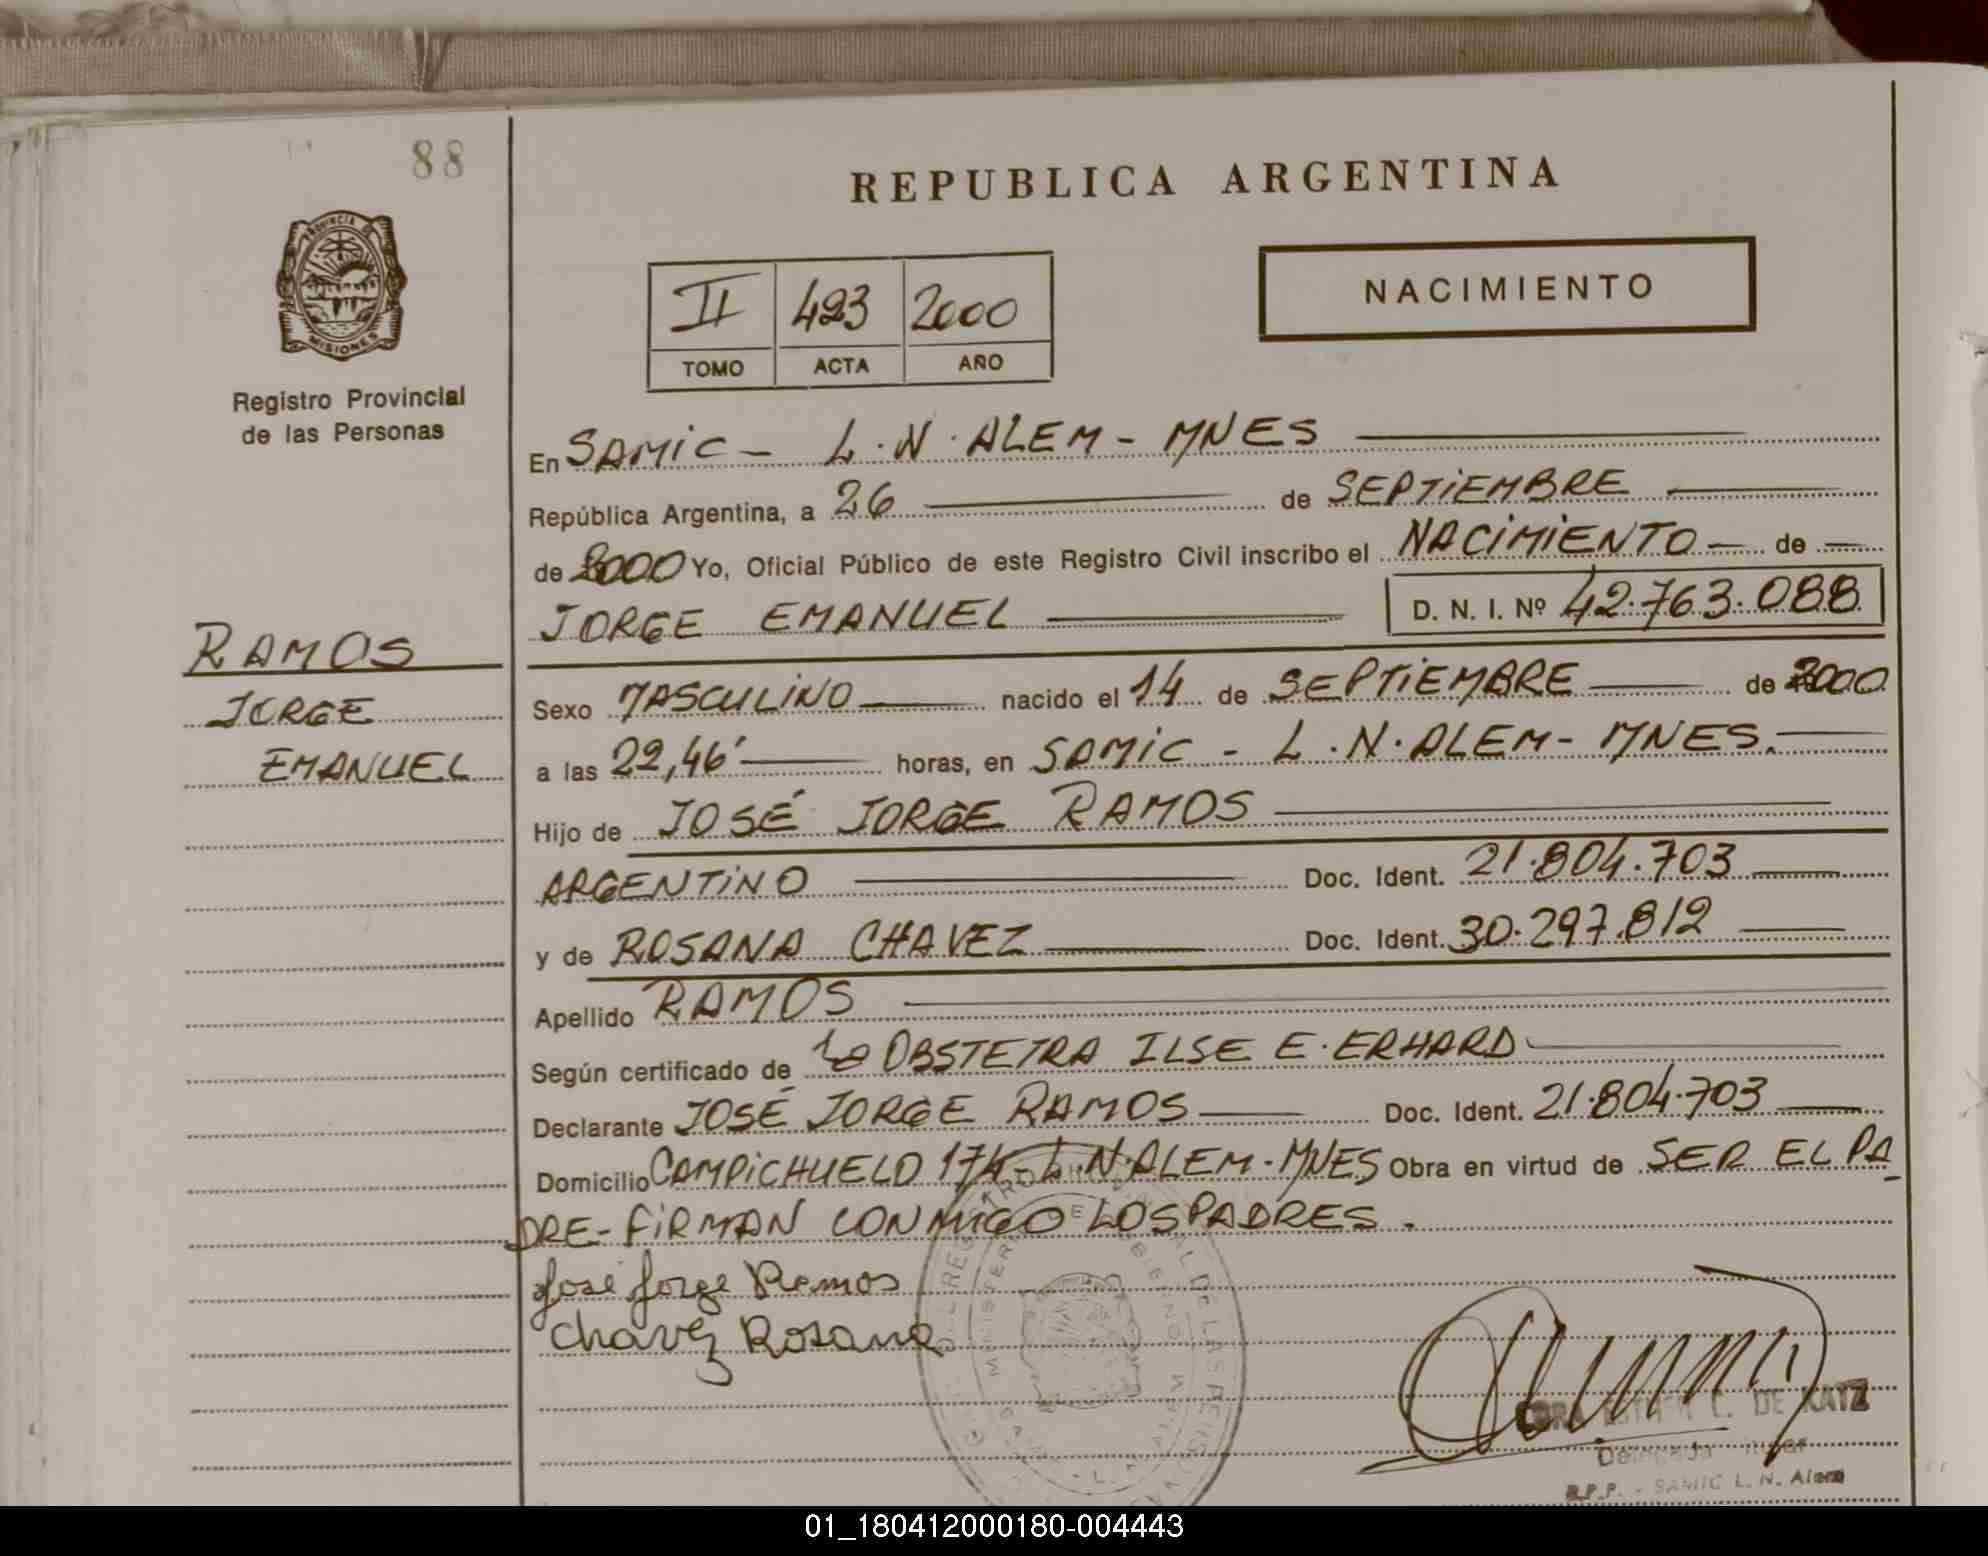 88
REPUBLICA ARGENTINA
PROVINCIA DE
MISIONES
Registro Provincial
de las Personas
II 423 2000
TOMO ACTA AÑO
NACIMIENTO
En SAMIC - L.N. ALEM - MNES
República Argentina, a 26 de SEPTIEMBRE
de 2000 Yo, Oficial Público de este Registro Civil inscribo el NACIMIENTO - de -
JORGE EMANUEL D. N. I. Nº 42.763.088
RAMOS
JORGE
EMANUEL
Sexo MASCULINO nacido el 14 de SEPTIEMBRE de 2000
a las 22,46' horas, en SAMIC - L.N. ALEM - MNES.
Hijo de JOSÉ JORGE RAMOS
ARGENTINO Doc. Ident. 21.804.703
y de ROSANA CHAVEZ Doc. Ident. 30.297.812
Apellido RAMOS
Según certificado de OBSTETRA ILSE E. ERHARD
Declarante JOSÉ JORGE RAMOS Doc. Ident. 21.804.703
Domicilio CAMPICHUELO 174 - L.N. ALEM - MNES Obra en virtud de SER EL PA
DRE - FIRMAN CONMIGO LOS PADRES.
José Jorge Ramos
Chavez Rosana
C. DE KATZ
Delegada Titular
R.P.P. - SAMIC L. N. Alem
01_180412000180-004443